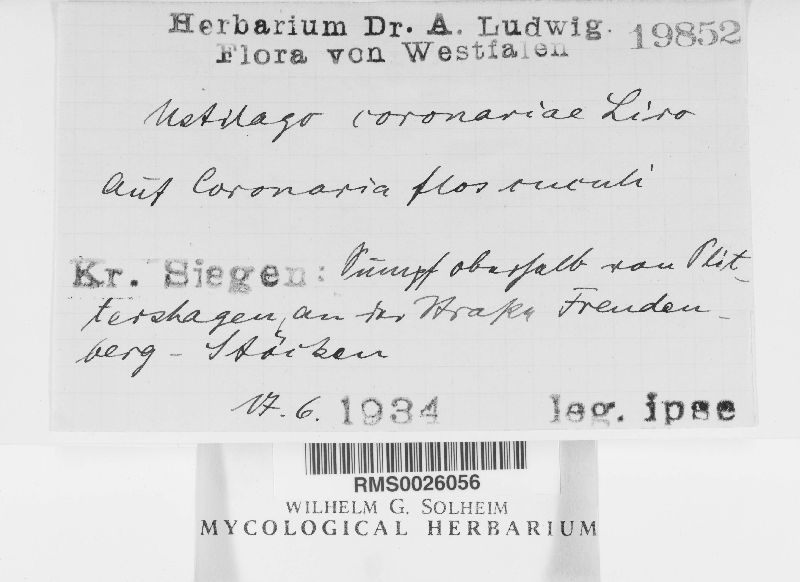 Herbarium Dr. A. Ludwig. 19852
Flora von Westfalen
Ustilago coronariae Liro
auf Coronaria flos cuculi
Kr. Siegen: Sumpf oberhalb von Plit-
tershagen, an der Straße Freuden-
berg - Stöcken
17. 6. 1934 leg. ipse
RMS0026056
WILHELM G. SOLHEIM
MYCOLOGICAL HERBARIUM